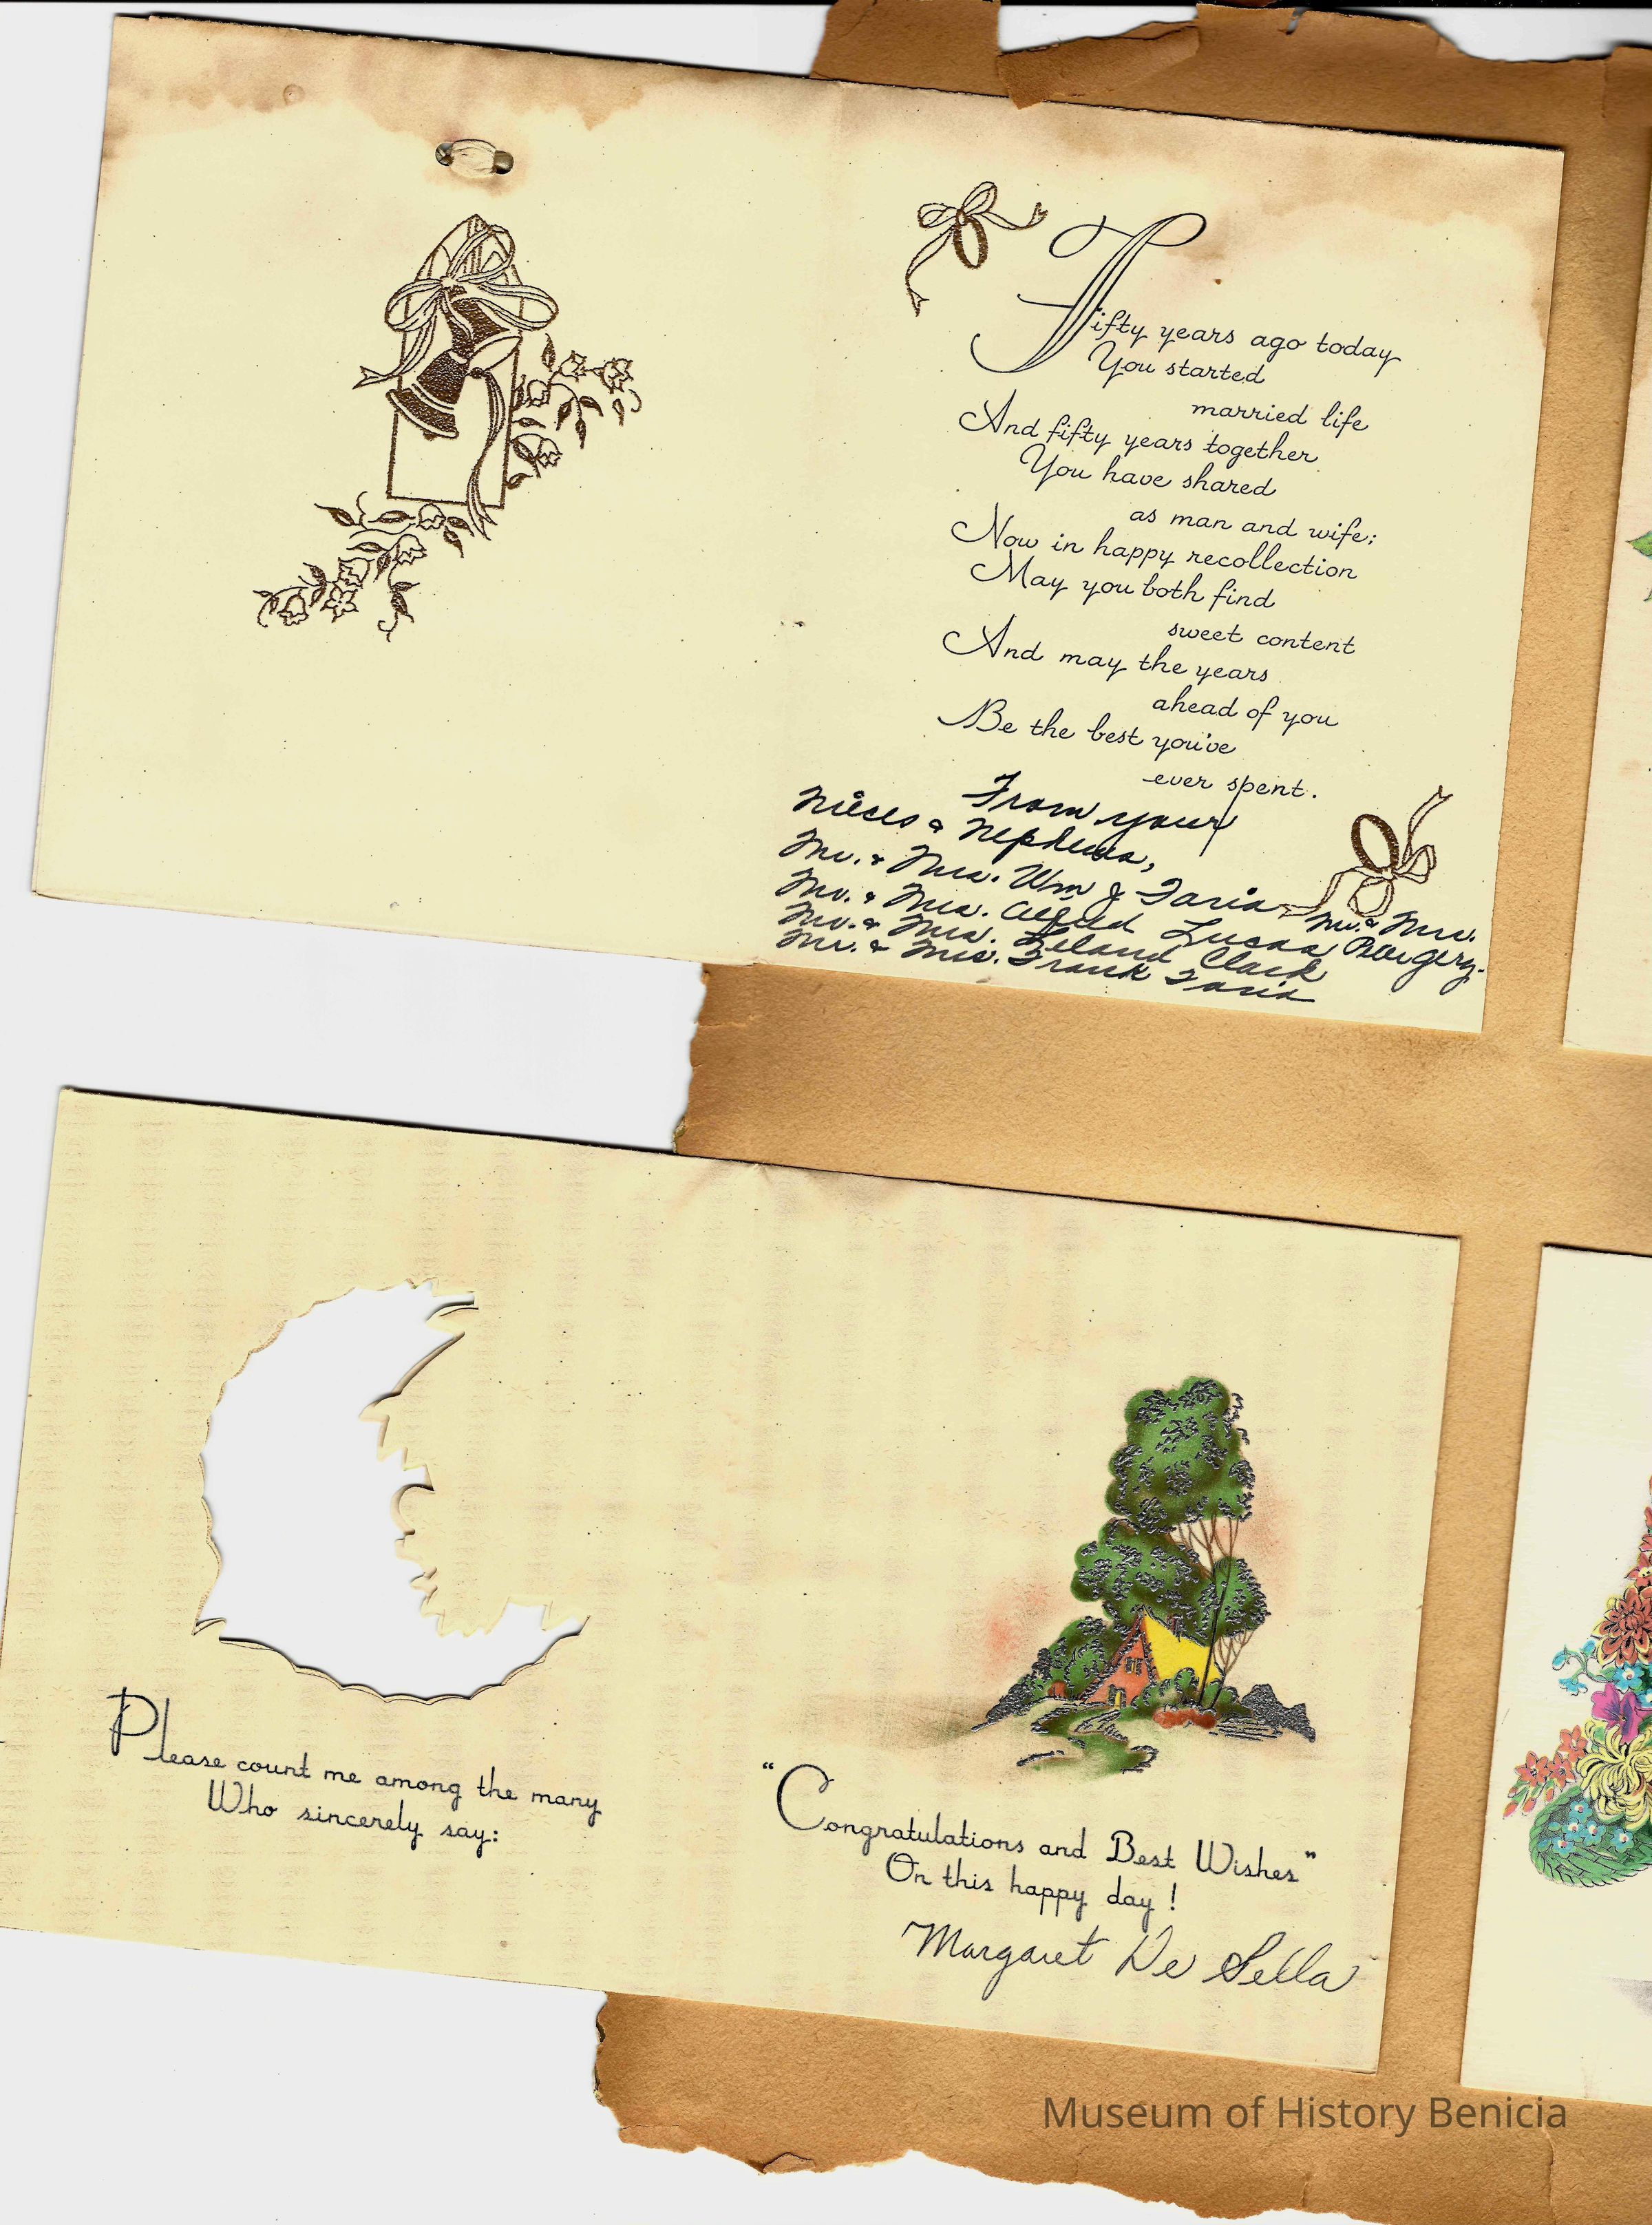 Fifty years ago today
You started
married life
And fifty years together
You have shared
as man and wife;
Now in happy recollection
May you both find
sweet content
And may the years
ahead of you
Be the best you've
ever spent.
From your
Nieces & Nephews,
Mr. & Mrs. Wm J Faria
Mr. & Mrs. Alfred Lucas
Mr. & Mrs. Leland Clark
Mr. & Mrs. Frank Faria
Mr. & Mrs.
Please count me among the many
Who sincerely say:
"Congratulations and Best Wishes"
On this happy day!
Margaret De Sella
Museum of History Benicia